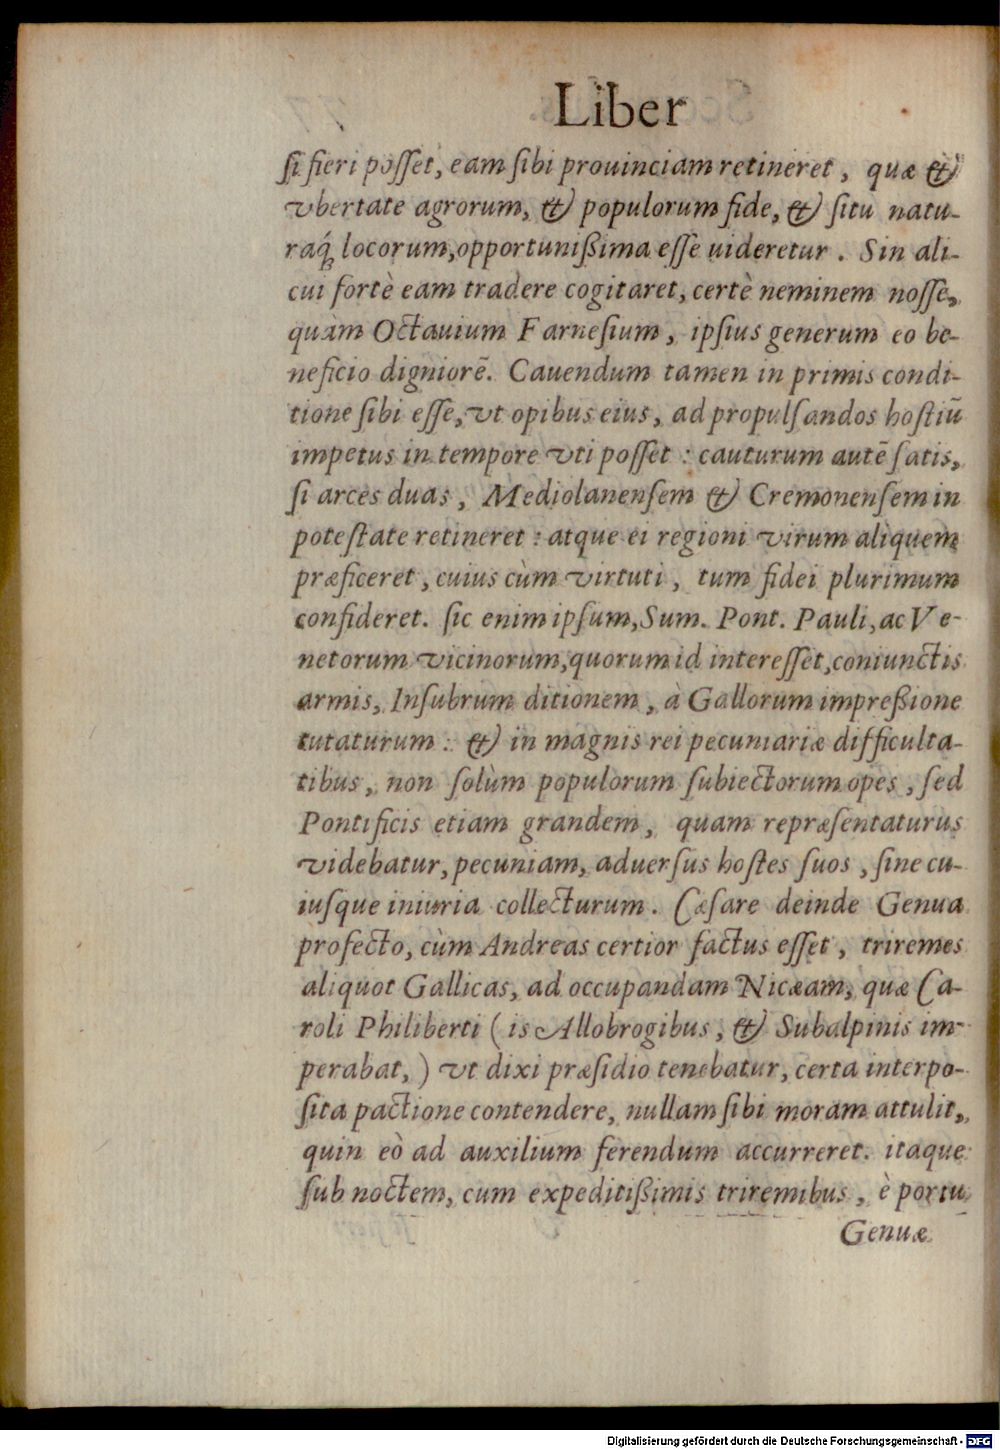 Liber
ſi fieri poſſet, eam ſibi prouinciam retineret, quæ &
vbertate agrorum, & populorum fide, & ſitu natu-
raq́; locorum, opportunißima eſſe uideretur. Sin ali-
cui fortè eam tradere cogitaret, certè neminem noſſe,
quàm Octauium Farneſium, ipſius generum eo be-
neficio digniorē. Cauendum tamen in primis condi-
tione ſibi eſſe, vt opibus eius, ad propulſandos hoſtiū
impetus in tempore vti poſſet: cauturum autē ſatis,
ſi arces duas, Mediolanenſem & Cremonenſem in
poteſtate retineret: atque ei regioni virum aliquem
præficeret, cuius cùm virtuti, tum fidei plurimum
confideret. ſic enim ipſum, Sum. Pont. Pauli, ac Ve-
netorum vicinorum, quorum id intereſſet, coniunctis
armis, Inſubrum ditionem, à Gallorum impreßione
tutaturum: & in magnis rei pecuniariæ difficulta-
tibus, non ſolùm populorum ſubiectorum opes, ſed
Pontificis etiam grandem, quam repræſentaturus
videbatur, pecuniam, aduerſus hoſtes ſuos, ſine cu-
iuſque iniuria collecturum. Cæſare deinde Genua
profecto, cùm Andreas certior factus eſſet, triremes
aliquot Gallicas, ad occupandam Nicæam, quæ Ca-
roli Philiberti (is Allobrogibus, & Subalpinis im-
perabat,) vt dixi præſidio tenebatur, certa interpo-
ſita pactione contendere, nullam ſibi moram attulit,
quin eò ad auxilium ferendum accurreret. itaque
ſub noctem, cum expeditißimis triremibus, è portu
Genuæ
Digitalisierung gefördert durch die Deutsche Forschungsgemeinschaft - DFG